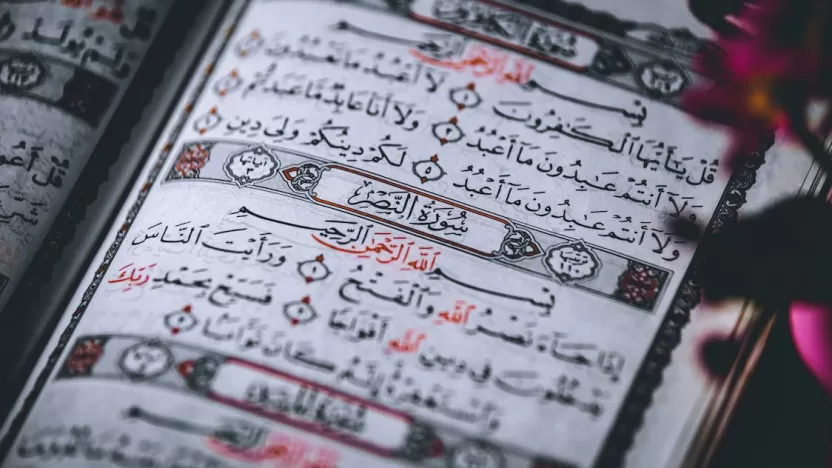 سُورَةُ الكَافِرُونَ
بِسْمِ اللَّهِ الرَّحْمَٰنِ الرَّحِيمِ
قُلْ يَٰٓأَيُّهَا ٱلْكَٰفِرُونَ ۝١ لَآ أَعْبُدُ مَا تَعْبُدُونَ ۝٢
وَلَآ أَنتُمْ عَٰبِدُونَ مَآ أَعْبُدُ ۝٣ وَلَآ أَنَا۠ عَابِدٌ مَّا عَبَدتُّمْ ۝٤
وَلَآ أَنتُمْ عَٰبِدُونَ مَآ أَعْبُدُ ۝٥ لَكُمْ دِينُكُمْ وَلِىَ دِينِ ۝٦
سُورَةُ النَّصْرِ
آيَاتُهَا
بِسْمِ اللَّهِ الرَّحْمَٰنِ الرَّحِيمِ
إِذَا جَآءَ نَصْرُ ٱللَّهِ وَٱلْفَتْحُ ۝١ وَرَأَيْتَ ٱلنَّاسَ
يَدْخُلُونَ فِى دِينِ ٱللَّهِ أَفْوَاجًا ۝٢ فَسَبِّحْ بِحَمْدِ رَبِّكَ
وَٱسْتَغْفِرْهُ إِنَّهُۥ كَانَ تَوَّابًۢا ۝٣